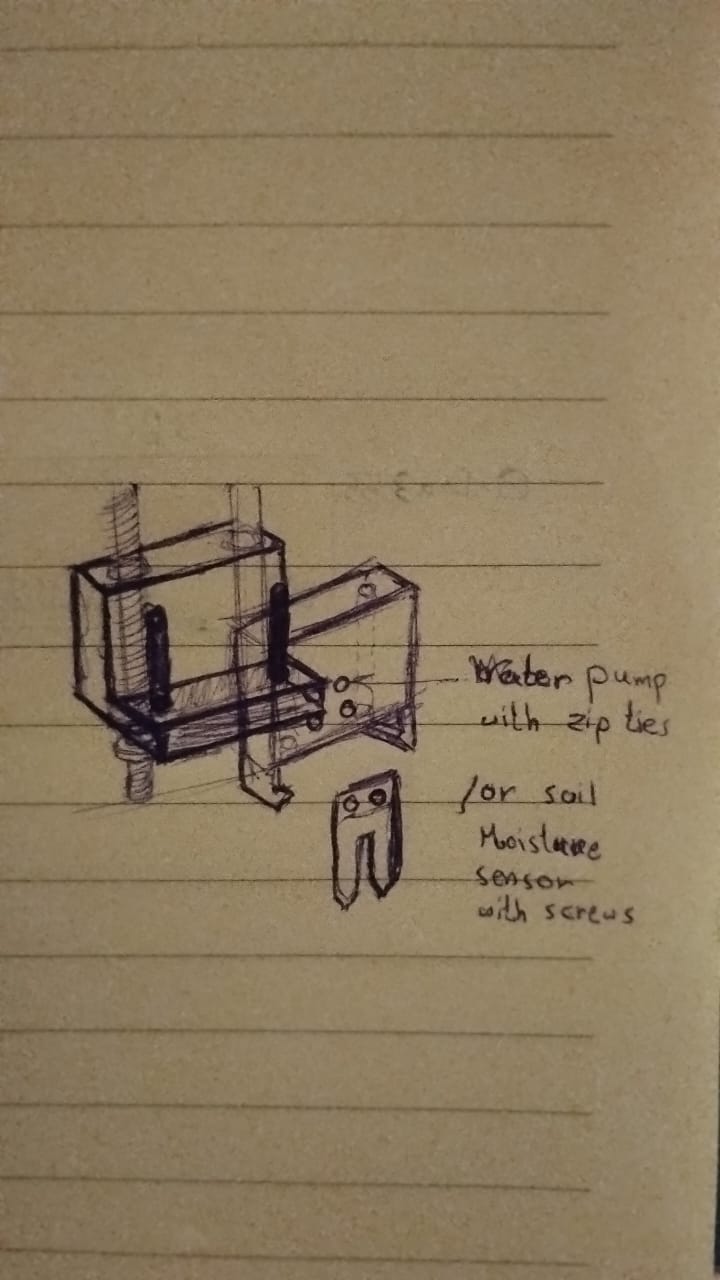 Water pump
with zip ties
/or soil
Moisture
sensor
with screws